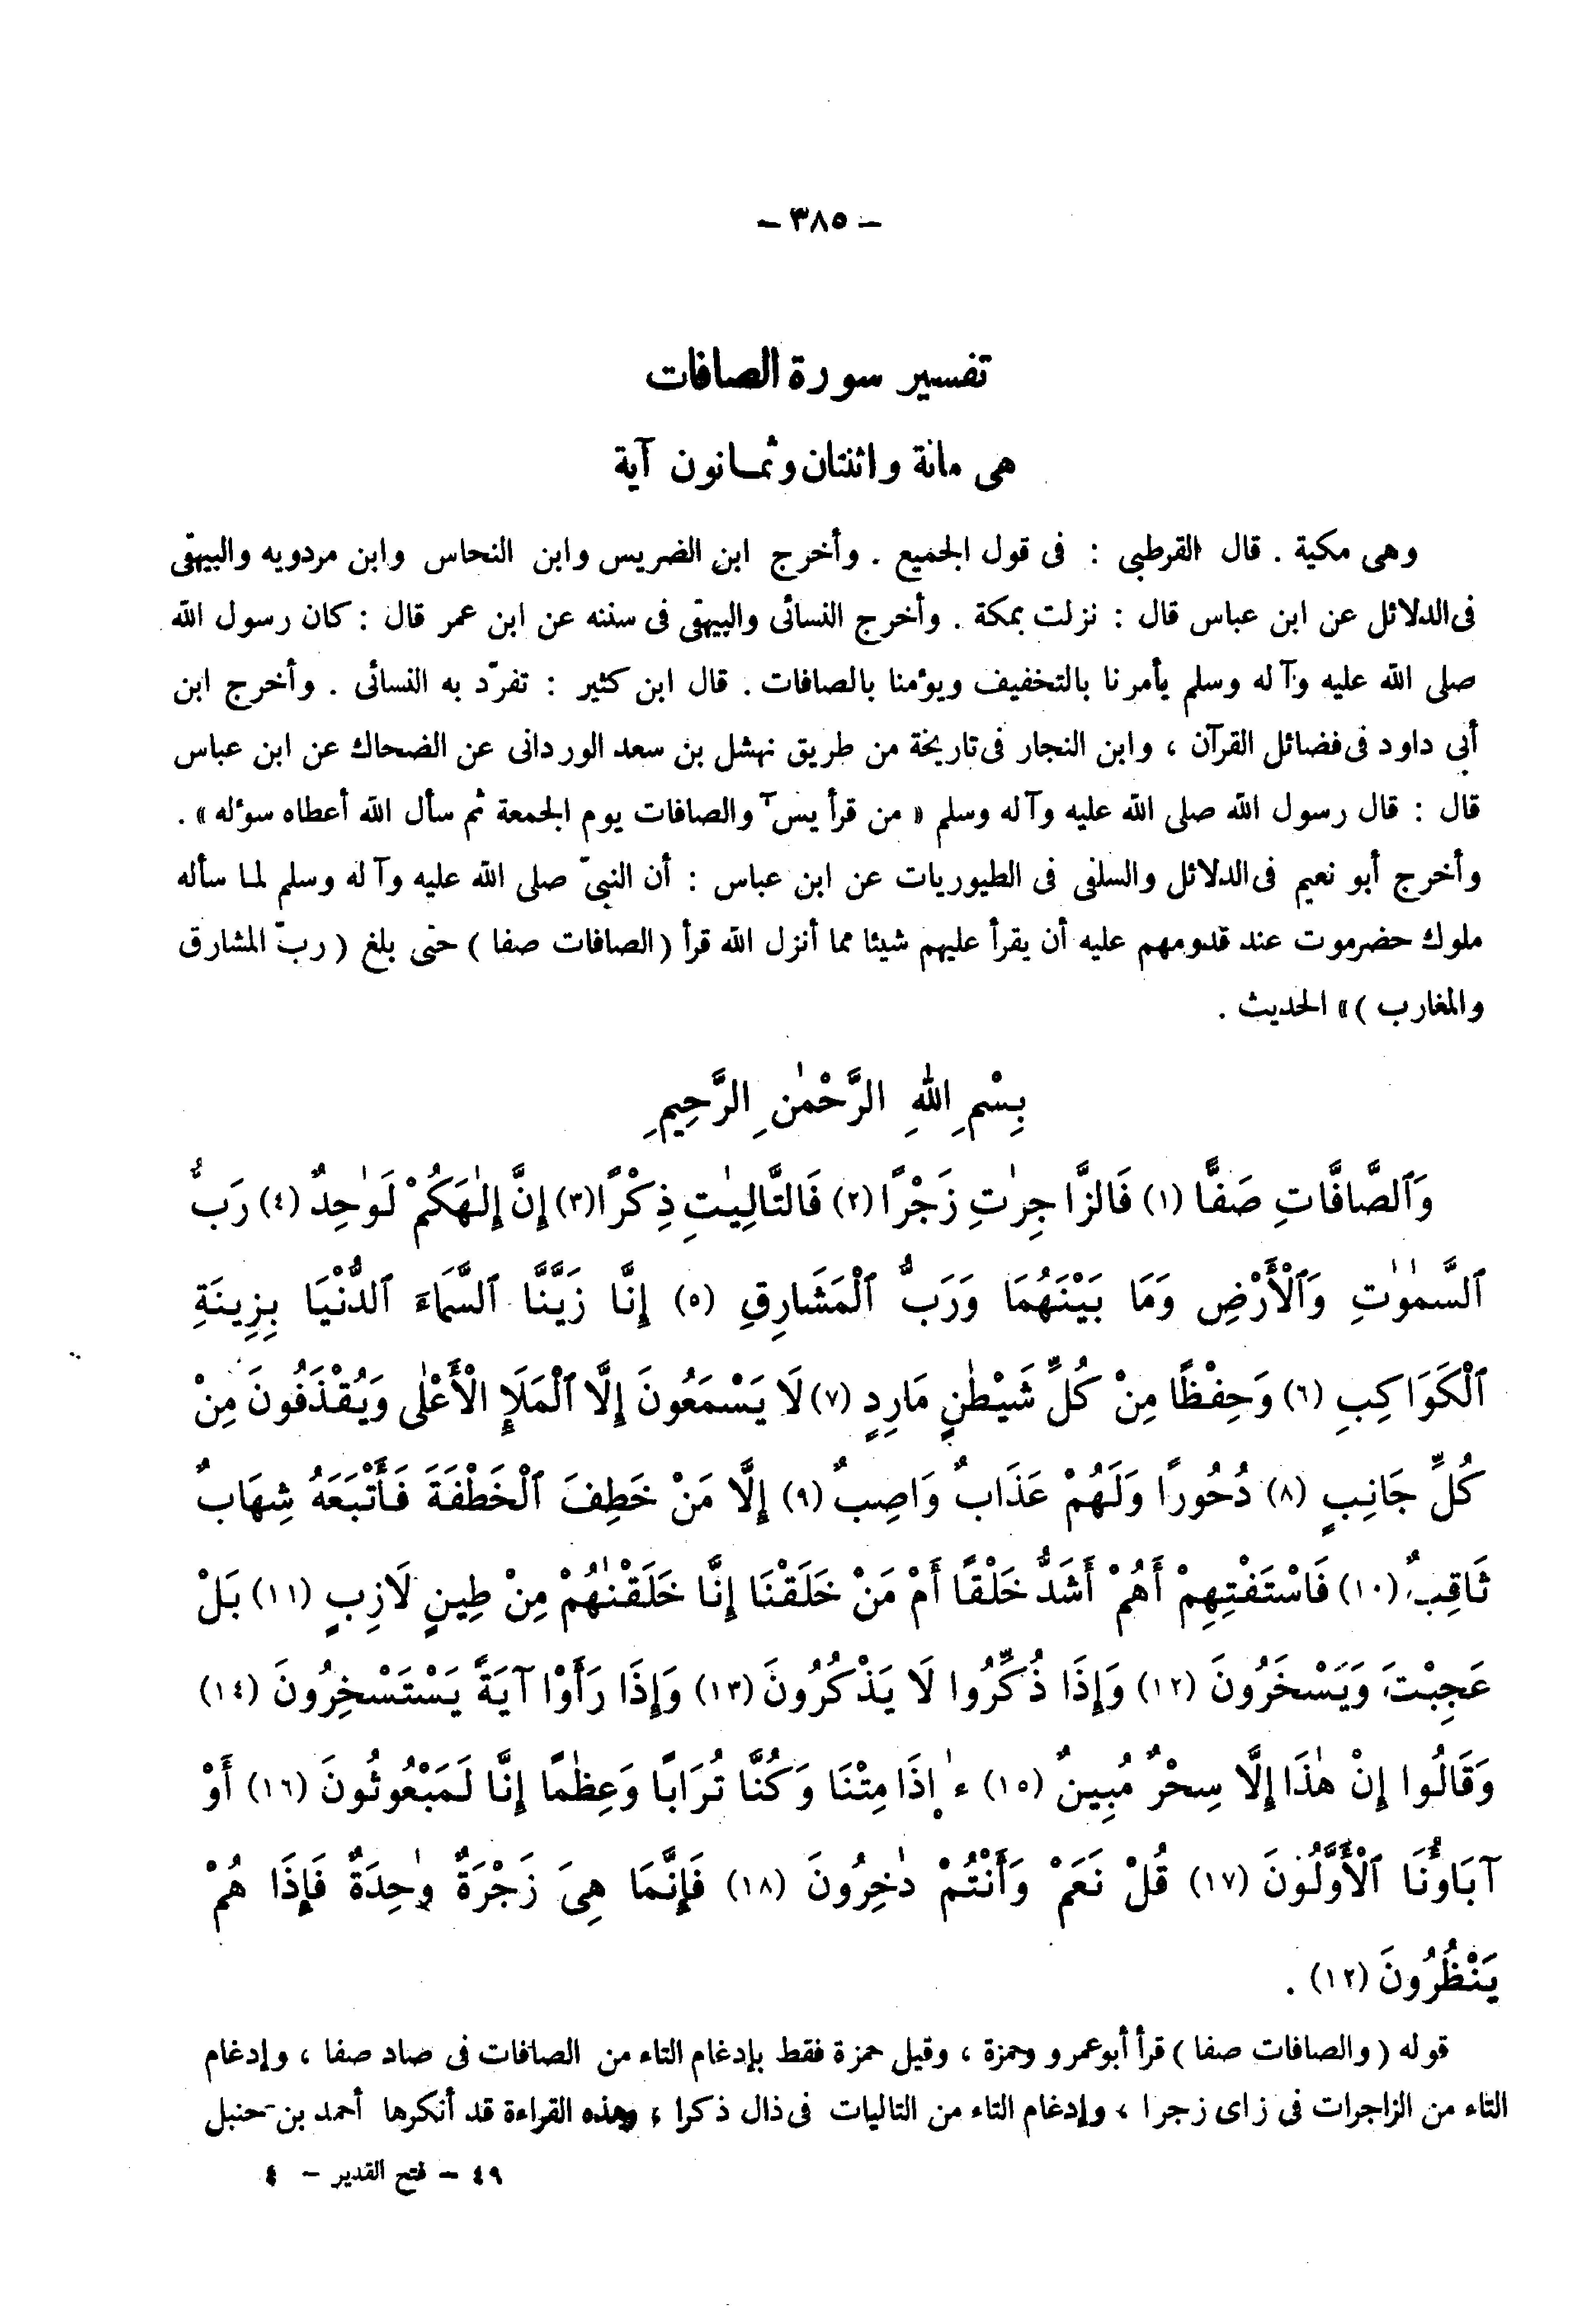 – ٣٨٥ –
تفسير سورة الصافات
هى مائة واثنتان وثمـانون آية
وهى مكية . قال القرطبى : فى قول الجميع . وأخرج ابن الضريس وابن النحاس وابن مردويه والبيهقى
فى الدلائل عن ابن عباس قال : نزلت بمكة . وأخرج النسائى والبيهقى فى سننه عن ابن عمر قال : كان رسول الله
صلى الله عليه وآله وسلم يأمرنا بالتخفيف ويؤمنا بالصافات . قال ابن كثير : تفرّد به النسائى . وأخرج ابن
أبى داود فى فضائل القرآن ، وابن النجار فى تاريخة من طريق نهشل بن سعد الوردانى عن الضحاك عن ابن عباس
قال : قال رسول الله صلى الله عليه وآله وسلم « من قرأ يسٓ والصافات يوم الجمعة ثم سأل الله أعطاه سؤله » .
وأخرج أبو نعيم فى الدلائل والسلفى فى الطيوريات عن ابن عباس : أن النبىّ صلى الله عليه وآله وسلم لمـا سأله
ملوك حضرموت عند قدومهم عليه أن يقرأ عليهم شيئا مما أنزل الله قرأ ( الصافات صفا ) حتى بلغ ( ربّ المشارق
والمغارب ) » الحديث .
بِسْمِ اللهِ الرَّحْمٰنِ الرَّحِيمِ
وَٱلصَّافَّاتِ صَفًّا (١) فَالزَّاجِرٰتِ زَجْرًا (٢) فَالتَّالِيٰتِ ذِكْرًا (٣) إِنَّ إِلٰهَكُمْ لَوٰحِدٌ (٤) رَبُّ
ٱلسَّمٰوٰتِ وَٱلْأَرْضِ وَمَا بَيْنَهُمَا وَرَبُّ ٱلْمَشَارِقِ (٥) إِنَّا زَيَّنَّا ٱلسَّمَاءَ ٱلدُّنْيَا بِزِينَةِ
ٱلْكَوَاكِبِ (٦) وَحِفْظًا مِنْ كُلِّ شَيْطٰنٍ مَارِدٍ (٧) لَا يَسْمَعُونَ إِلَّا ٱلْمَلَإِ الْأَعْلٰى وَيُقْذَفُونَ مِنْ
كُلِّ جَانِبٍ (٨) دُحُورًا وَلَهُمْ عَذَابٌ وَاصِبٌ (٩) إِلَّا مَنْ خَطِفَ ٱلْخَطْفَةَ فَأَتْبَعَهُ شِهَابٌ
ثَاقِبٌ (١٠) فَاسْتَفْتِهِمْ أَهُمْ أَشَدُّ خَلْقًا أَمْ مَنْ خَلَقْنَا إِنَّا خَلَقْنٰهُمْ مِنْ طِينٍ لَازِبٍ (١١) بَلْ
عَجِبْتَ وَيَسْخَرُونَ (١٢) وَإِذَا ذُكِّرُوا لَا يَذْكُرُونَ (١٣) وَإِذَا رَأَوْا آيَةً يَسْتَسْخِرُونَ (١٤)
وَقَالُوا إِنْ هٰذَا إِلَّا سِحْرٌ مُبِينٌ (١٥) ءَإِذَا مِتْنَا وَكُنَّا تُرَابًا وَعِظٰمًا إِنَّا لَمَبْعُوثُونَ (١٦) أَوْ
آبَاؤُنَا ٱلْأَوَّلُونَ (١٧) قُلْ نَعَمْ وَأَنْتُمْ دٰخِرُونَ (١٨) فَإِنَّمَا هِىَ زَجْرَةٌ وٰحِدَةٌ فَإِذَا هُمْ
يَنْظُرُونَ (١٢) .
قوله ( والصافات صفا ) قرأ أبو عمرو وحمزة ، وقيل حمزة فقط بإدغام التاء من الصافات فى صاد صفا ، وإدغام
التاء من الزاجرات فى زاى زجرا ، وإدغام التاء من التاليات فى ذال ذكرا ، وهذه القراءة قد أنكرها أحمد بن حنبل
٤٩ – فتح القدير – ٤